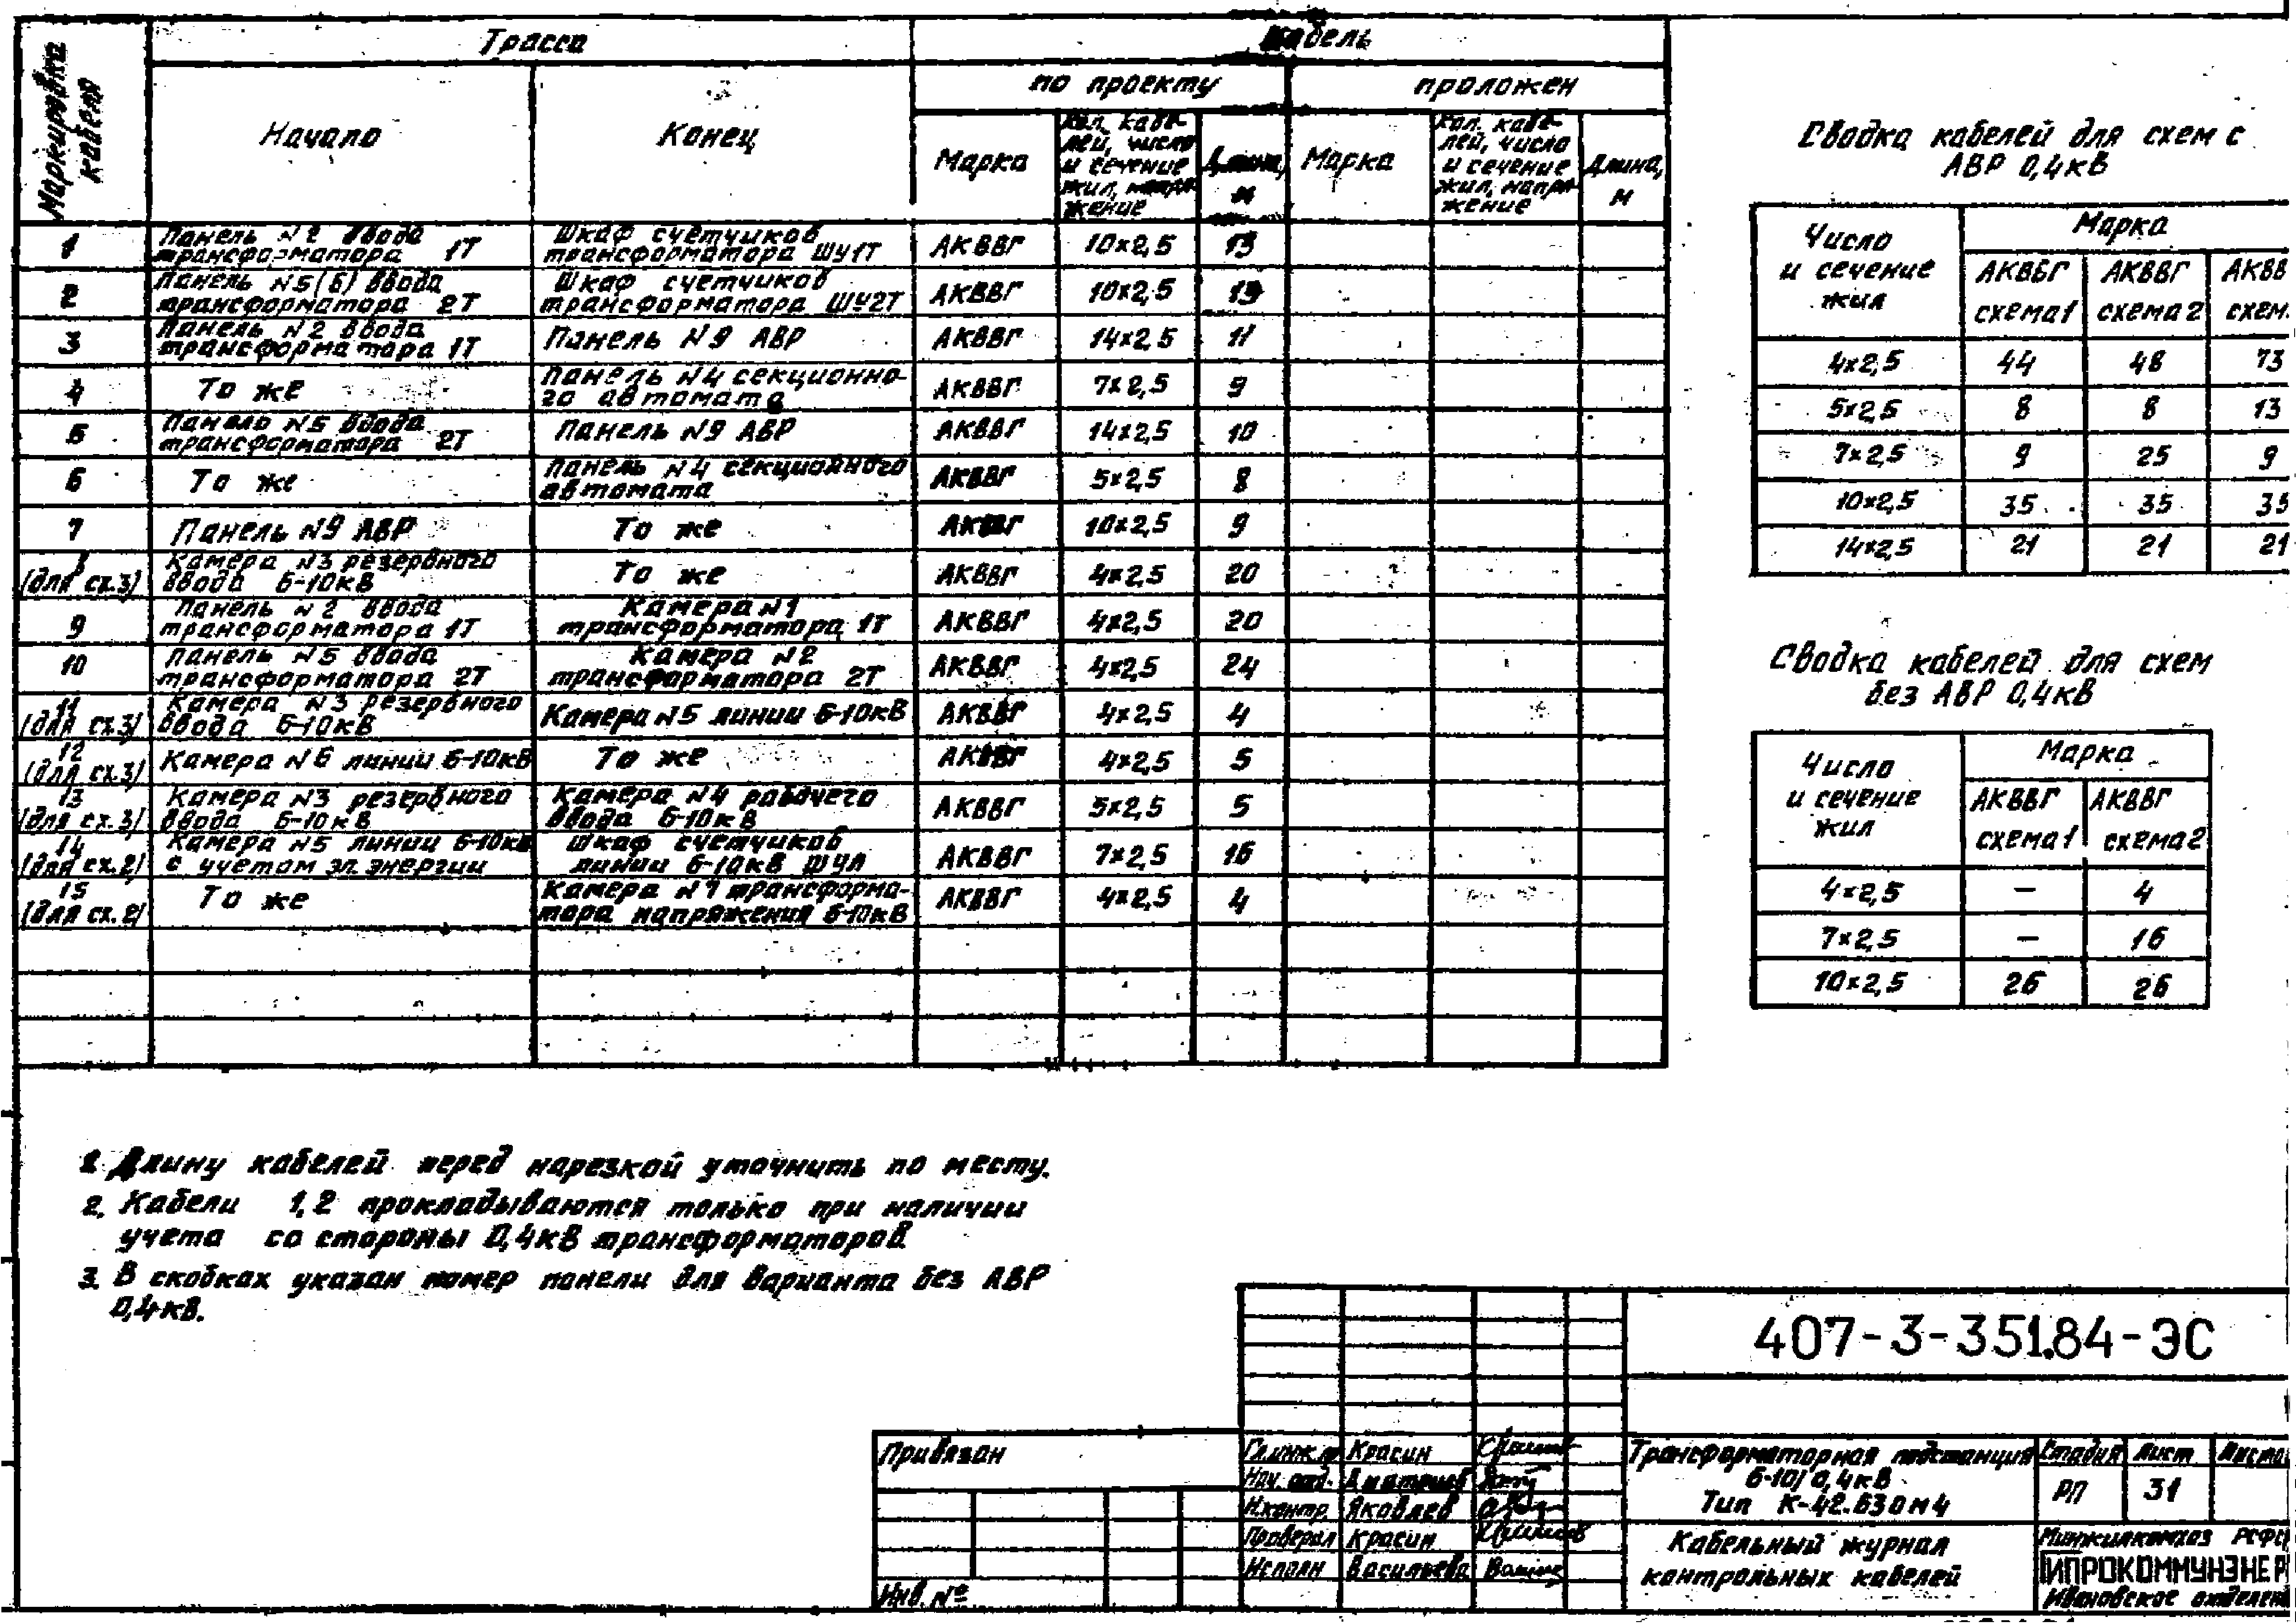 Маркировка кабеля
Трасса
Кабель
по проекту
проложен
Начало
Конец
Марка
Кол. кабе-
лей, число
и сечение
жил, напря-
жение
Длина,
м
Марка
Кол. кабе-
лей, число
и сечение
жил, напря-
жение
Длина,
м
1 Панель №2 ввода трансформатора 1Т Шкаф счетчиков трансформатора ШУ1Т АКВВГ 10×2,5 13
2 Панель №5(6) ввода трансформатора 2Т Шкаф счетчиков трансформатора ШУ2Т АКВВГ 10×2,5 13
3 Панель №2 ввода трансформатора 1Т Панель №9 АВР АКВВГ 14×2,5 11
4 То же Панель №4 секционно-го автомата АКВВГ 7×2,5 9
5 Панель №5 ввода трансформатора 2Т Панель №9 АВР АКВВГ 14×2,5 10
6 То же Панель №4 секционного автомата АКВВГ 5×2,5 8
7 Панель №9 АВР То же АКВВГ 10×2,5 9
8 (для сх.3) Камера №3 резервного ввода 6-10кВ То же АКВВГ 4×2,5 20
9 Панель №2 ввода трансформатора 1Т Камера №1 трансформатора 1Т АКВВГ 4×2,5 20
10 Панель №5 ввода трансформатора 2Т Камера №2 трансформатора 2Т АКВВГ 4×2,5 24
11 (для сх.3) Камера №3 резервного ввода 6-10кВ Камера №5 линии 6-10кВ АКВВГ 4×2,5 4
12 (для сх.3) Камера №6 линии 6-10кВ То же АКВВГ 4×2,5 5
13 (для сх.3) Камера №3 резервного ввода 6-10кВ Камера №4 рабочего ввода 6-10кВ АКВВГ 5×2,5 5
14 (для сх.2) Камера №5 линии 6-10кВ с учетом эл. энергии Шкаф счетчиков линии 6-10кВ ШУЛ АКВВГ 7×2,5 16
15 (для сх.2) То же Камера №7 трансформа-тора напряжения 6-10кВ АКВВГ 4×2,5 4
Сводка кабелей для схем с
АВР 0,4кВ
Число
и сечение
жил
Марка
АКВВГ АКВВГ АКВВ
схема1 схема2 схем.
4×2,5 44 48 73
5×2,5 8 8 13
7×2,5 9 25 9
10×2,5 35 35 35
14×2,5 21 21 21
Сводка кабелей для схем
без АВР 0,4кВ
Число
и сечение
жил
Марка
АКВВГ АКВВГ
схема1 схема2
4×2,5 — 4
7×2,5 — 16
10×2,5 26 26
1. Длину кабелей перед нарезкой уточнить по месту.
2. Кабели 1,2 прокладываются только при наличии
учета со стороны 0,4кВ трансформаторов
3. В скобках указан номер панели для варианта без АВР
0,4кВ.
407-3-351.84-ЭС
Привязан
Инв. №
Гл.инж.п Красин
Нач. отд.
Н.контр. Яковлев
Проверил Красин
Исполн Васильева
Трансформаторная подстанция
6-10/0,4кВ
Тип К-42.630м4
Стадия Лист Листо
РП 31
Кабельный журнал
контрольных кабелей
Минжилкомхоз РСФС
ГИПРОКОММУНЭНЕР
Ивановское отделен